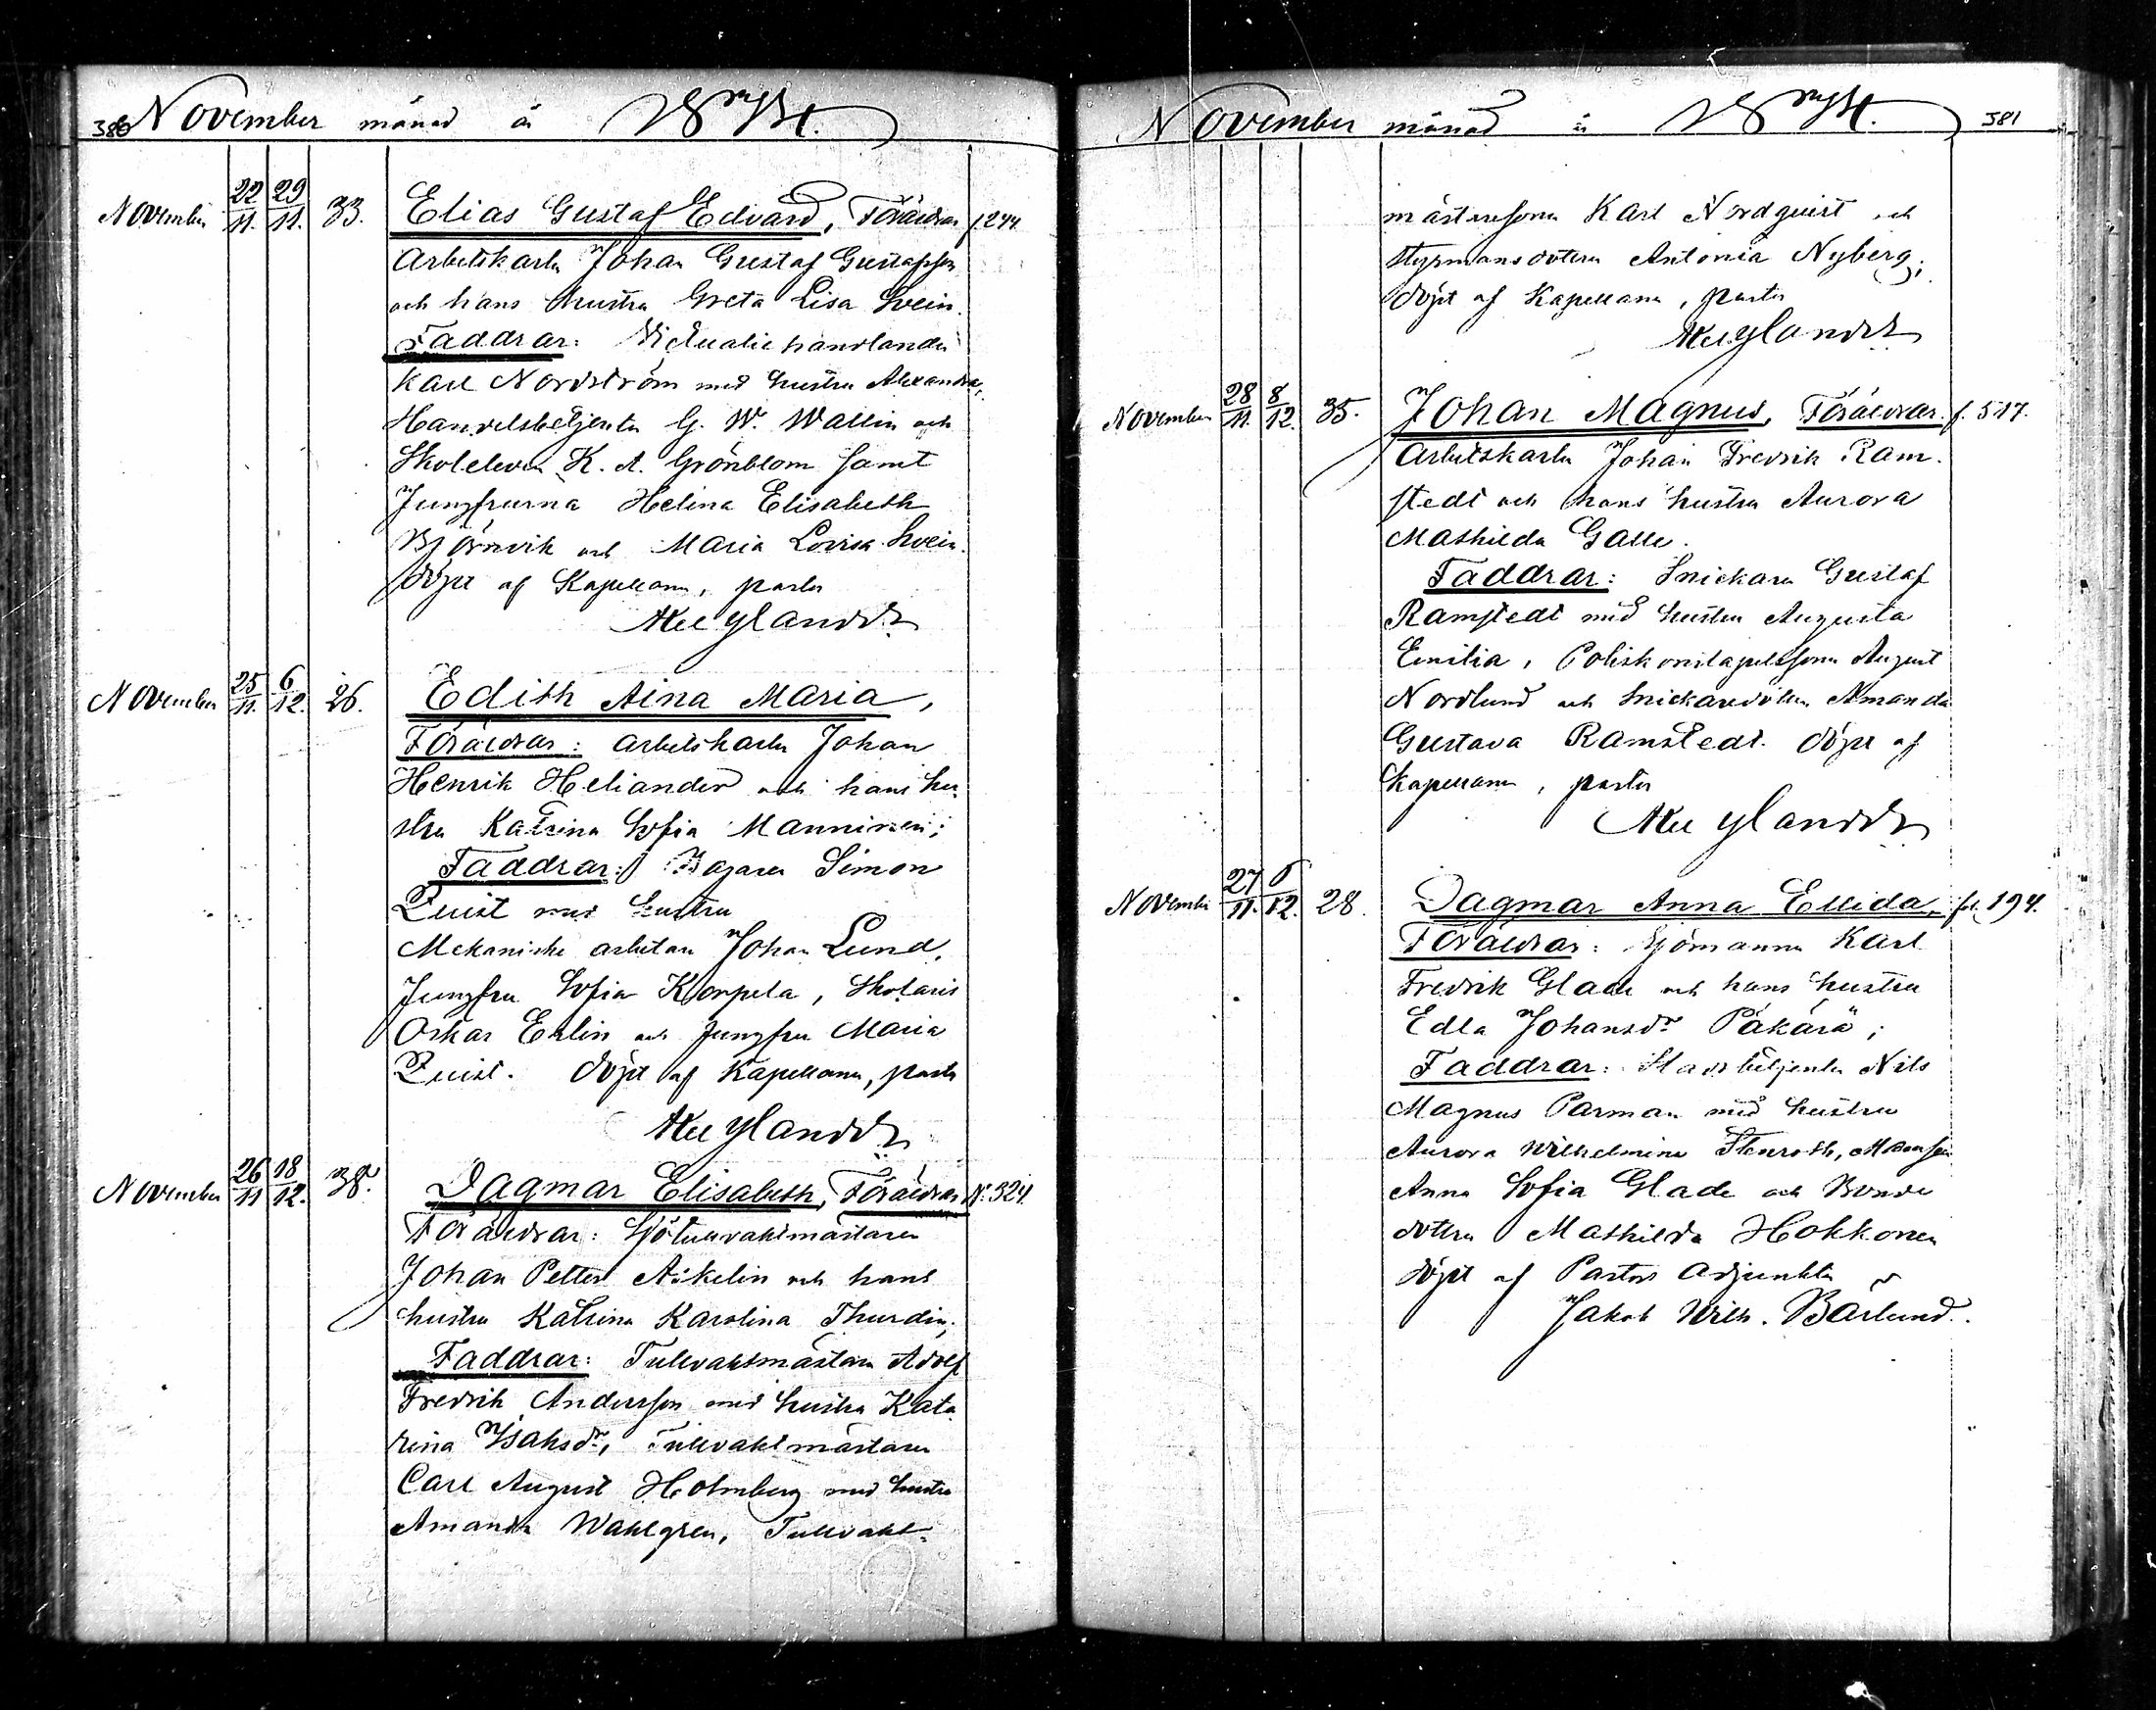 380 November månad år
November 22/11. 29/11. 33. Elias Gustaf Edvard, Föräldrar f. 244.
Arbetskarln Johan Gustaf Gustafsson
och hans hustru Greta Lisa Svein.
Faddrar: Victualiehandlanden
Karl Nordström med hustru Alexandra,
Handelsbetjenten G. W. Wallin och
Skoleleven K. A. Grönblom samt
Jungfrurna Helina Elisabeth
Björnvik och Maria Lovisa Svein.
döpt af Kapellanen, pastor
November 25/11. 6/12. 26. Edith Aina Maria,
Föräldrar: arbetskarln Johan
Henrik Heliander och hans hu-
stru Katrina Sofia Manninen;
Faddrar: Bagaren Simon
Quist med hustru
Mekaniske arbetaren Johan Lund,
Jungfru Sofia Korpela, Skolaris
Oskar Ehlin och Jungfru Maria
Quist. döpt af Kapellanen, pastor
November 26/11 18/12. 38. Dagmar Elisabeth, Föräldrar N. 324.
Föräldrar: Sjötullvaktmästaren
Johan Petter Askelin och hans
hustru Katrina Karolina Thurdin;
Faddrar: Tullvaktmästaren Adolf
Fredrik Andersson med hustru Kata
rina Isaksdr, Tullvaktmästaren
Carl August Holmberg med hustru
Amanda Wahlgren, Tullvakt-
November månad år 381
mästaresonen Karl Nordquist och
styrmansdottern Antonia Nyberg;
döpt af Kapellanen, pastor
November 28/11. 8/12. 35. Johan Magnus, Föräldrar f. 517.
Arbetskarln Johan Fredrik Ram-
stedt och hans hustru Aurora
Mathilda Galle.
Faddrar: Snickaren Gustaf
Ramstedt med hustru Augusta
Emilia, Poliskonstapelssonen August
Nordlund och Snickaredottern Amanda
Gustava Ramstedt. döpt af
Kapellanen, pastor
November 27/11. 12. 28. Dagmar Anna Ellida, fol. 194.
Föräldrar: Sjömannen Karl
Fredrik Glade och hans hustru
Edla Johansdr Päkärä;
Faddrar: Stadsbetjenten Nils
Magnus Parman med hustru
Aurora Wilhelmina Stenroth, Mamsell
Anna Sofia Glade och Bonde
dottern Mathilda Hokkonen
döpt af Pastors Adjunkten
Jakob Wilh. Bärlund.